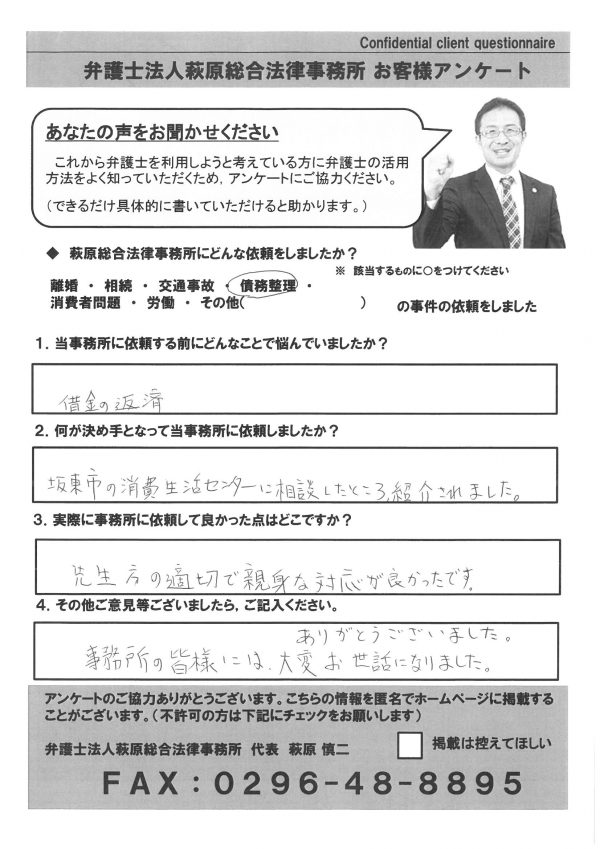 Confidential client questionnaire
弁護士法人萩原総合法律事務所 お客様アンケート
あなたの声をお聞かせください
これから弁護士を利用しようと考えている方に弁護士の活用
方法をよく知っていただくため，アンケートにご協力ください。
（できるだけ具体的に書いていただけると助かります。）
◆ 萩原総合法律事務所にどんな依頼をしましたか？
※ 該当するものに○をつけてください
離婚 ・ 相続 ・ 交通事故 ・ 債務整理 ・
消費者問題 ・ 労働 ・ その他( ) の事件の依頼をしました
１．当事務所に依頼する前にどんなことで悩んでいましたか？
借金の返済
２．何が決め手となって当事務所に依頼しましたか？
坂東市の消費生活センターに相談したところ、紹介されました。
３．実際に事務所に依頼して良かった点はどこですか？
先生方の適切で親身な対応が良かったです。
４．その他ご意見等ございましたら，ご記入ください。
ありがとうございました。
事務所の皆様には、大変お世話になりました。
アンケートのご協力ありがとうございます。こちらの情報を匿名でホームページに掲載する
ことがございます。（不許可の方は下記にチェックをお願いします）
弁護士法人萩原総合法律事務所 代表 萩原 慎二
掲載は控えてほしい
ＦＡＸ：０２９６－４８－８８９５